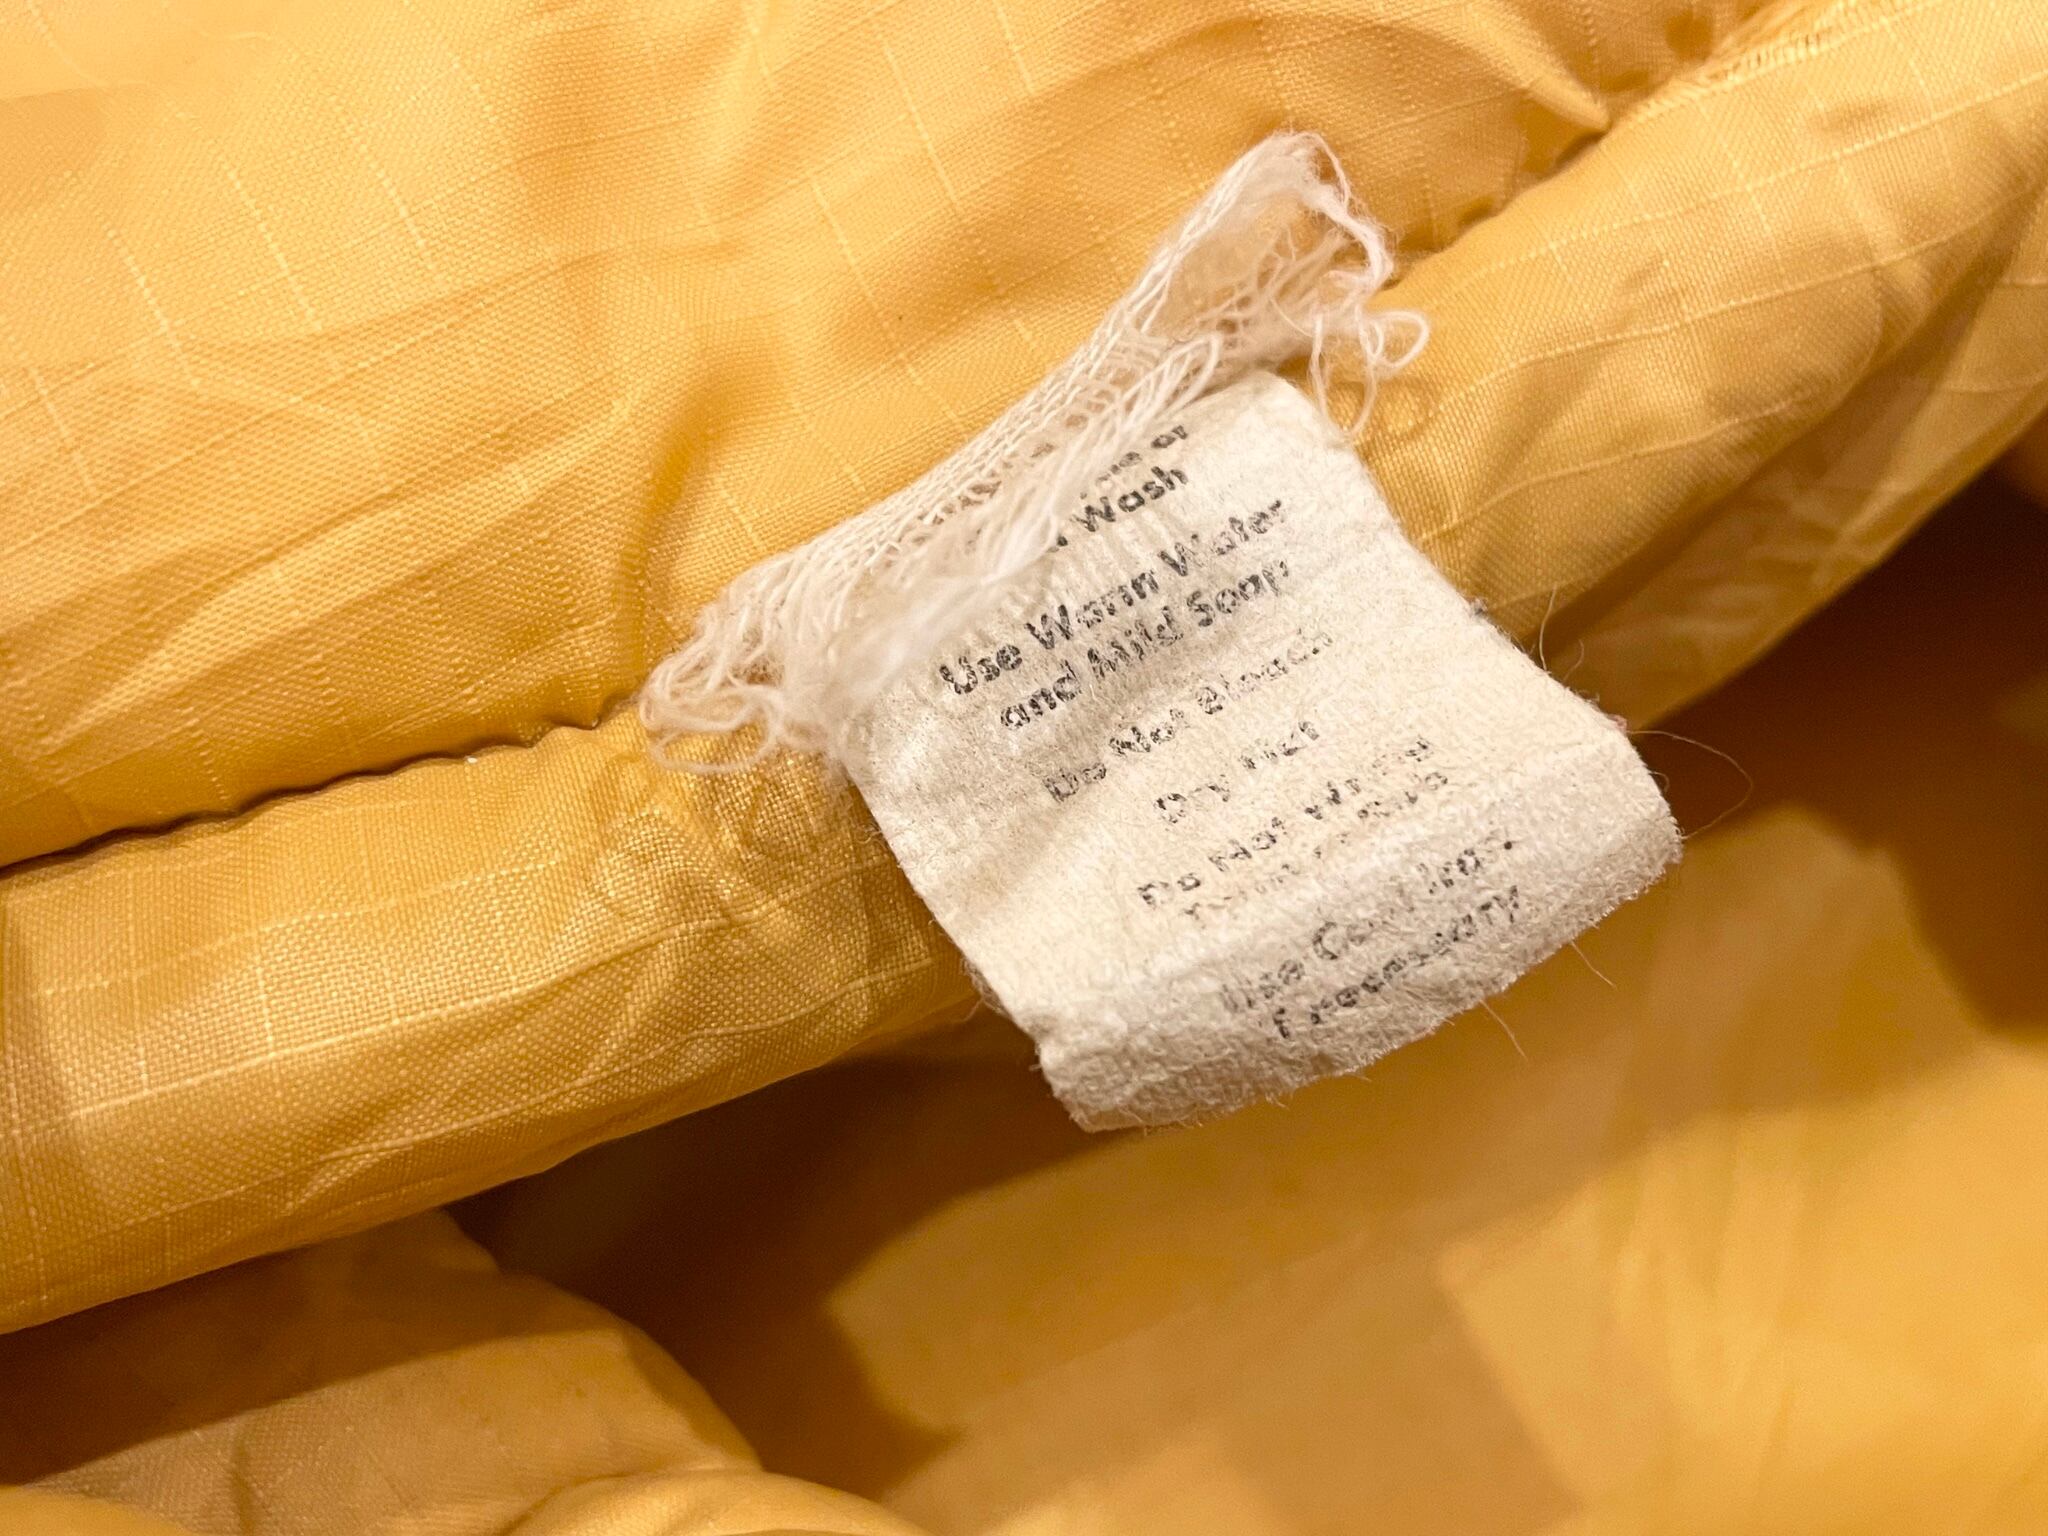 or
Wash
Use Warm Water
and Mild Soap
Do Not Bleach
Dry Flat
Do Not Wring
Use Cool Iron